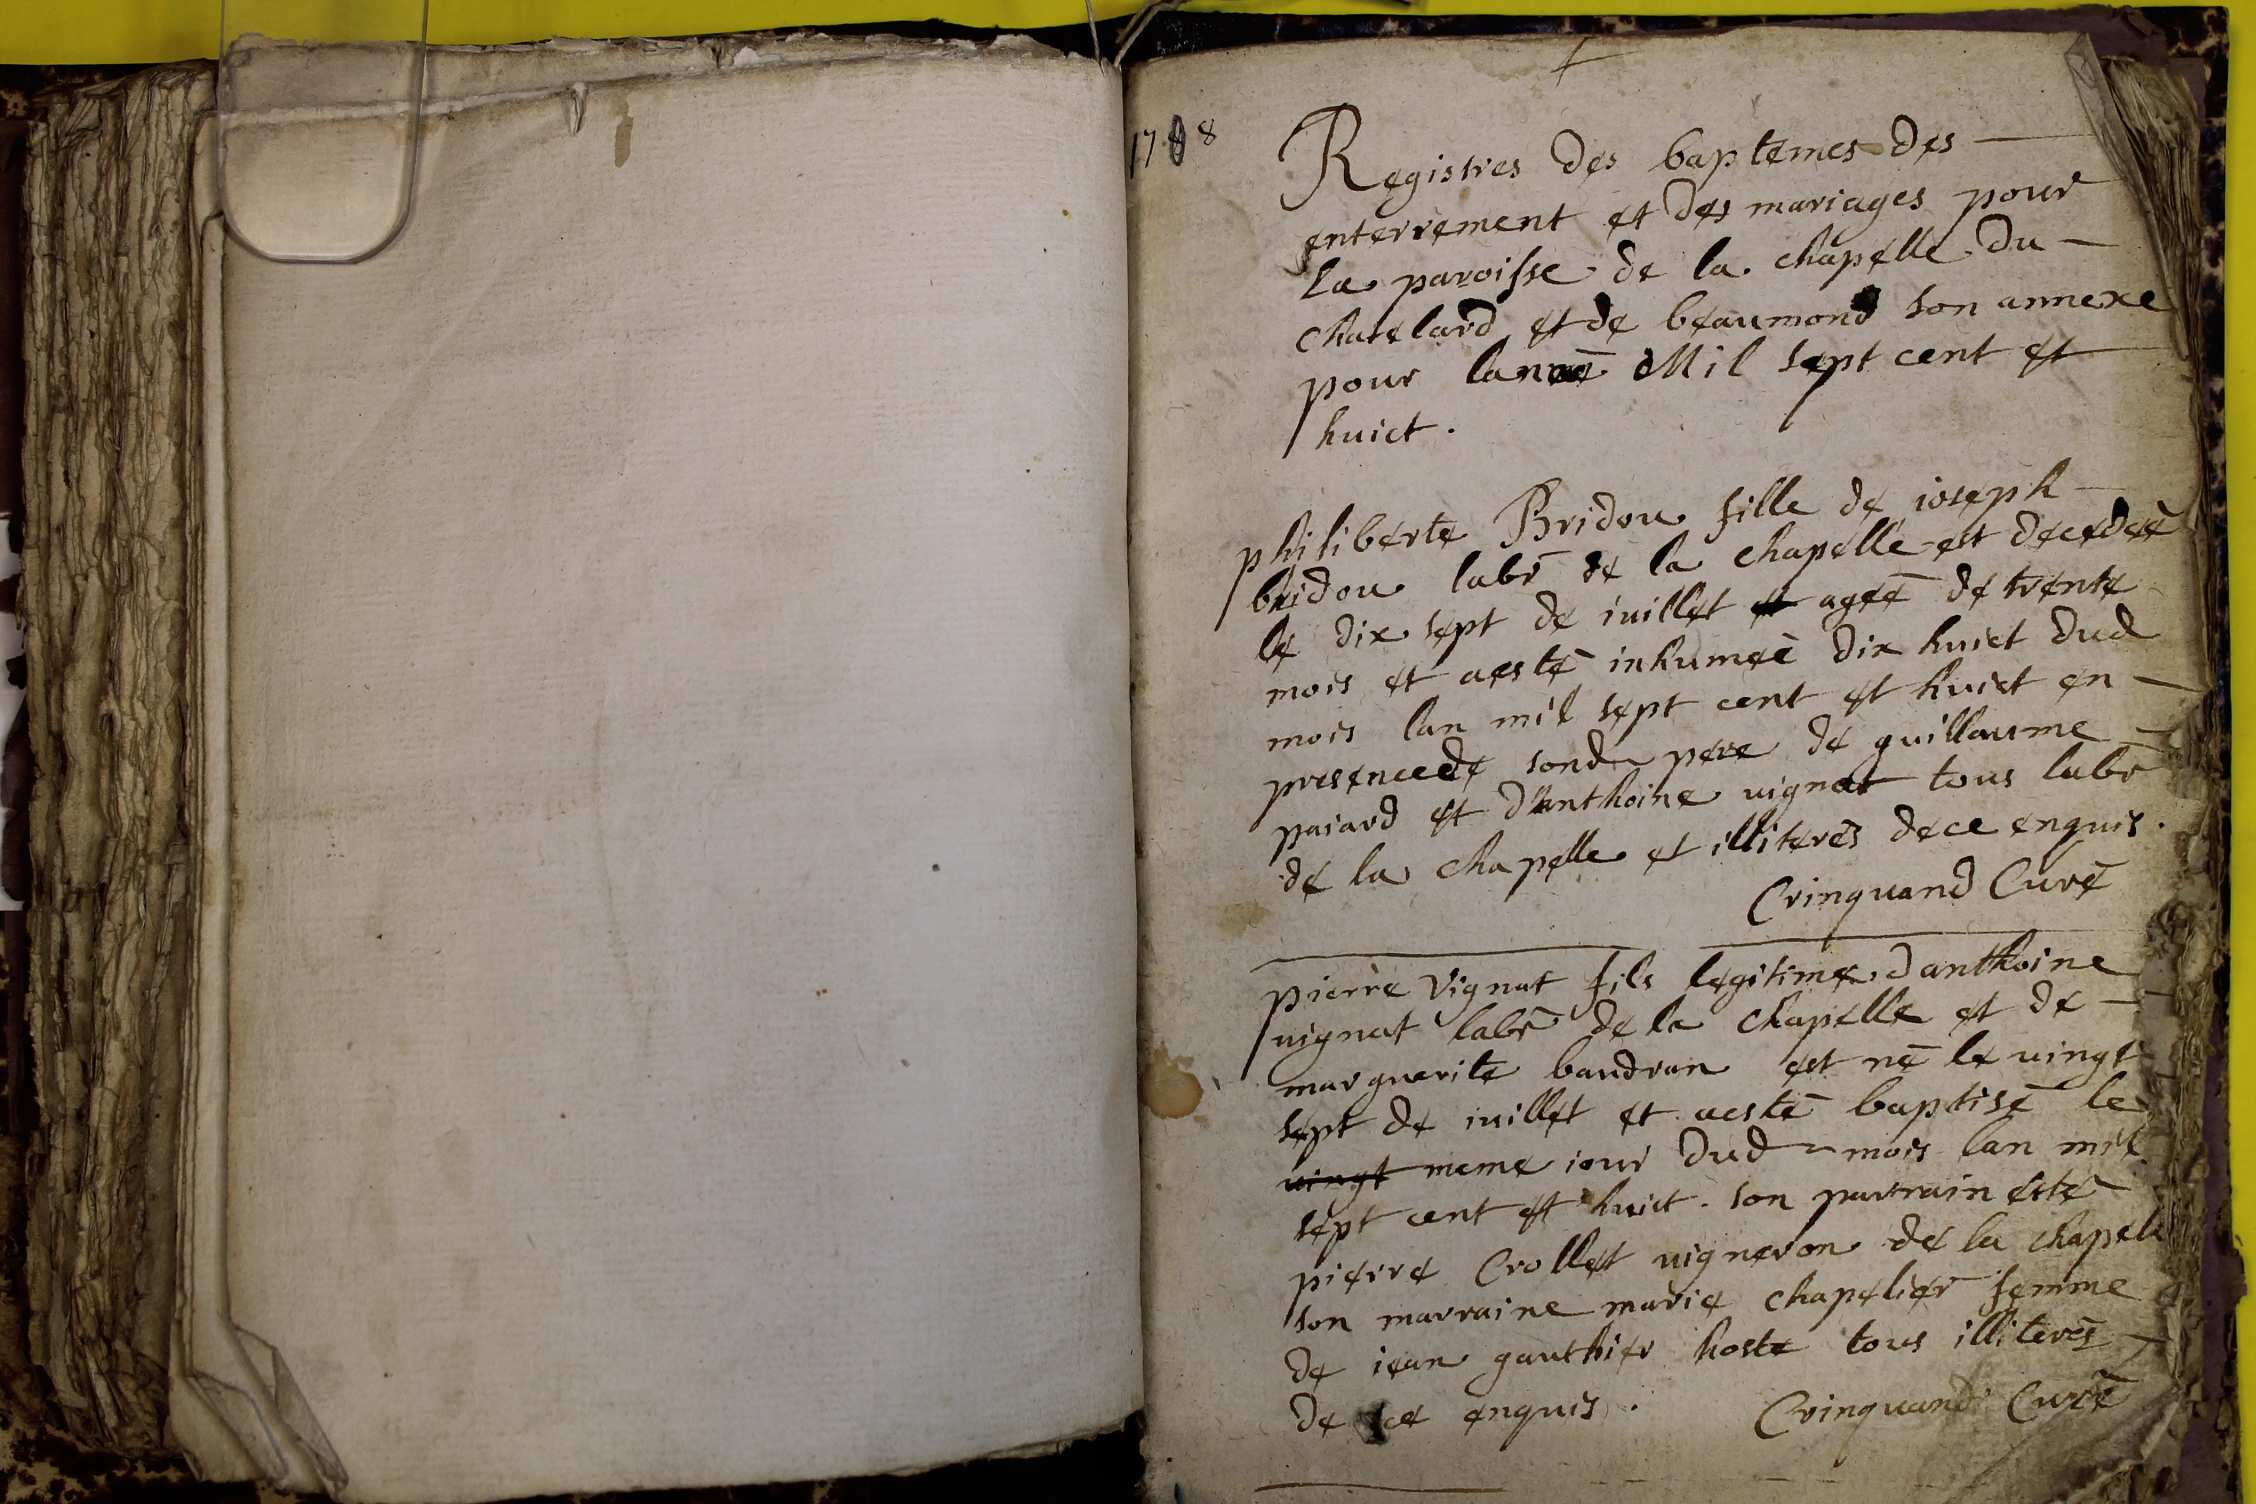 1708
Registres des baptemes des
enterrement et des mariages pour
la paroisse de la chapelle du
chatelard et de beaumond son annexe
pour lanneē Mil sept cent et
huict.
philiberte Bridou fille de ioseph
bridou labr̄ de la chapelle est decedeē
le dix sept de iuillet ageē de trente
mois et aestē inhumeē dix huict dud
mois lan mil sept cent et huict en
presencede sond pere de guillaume
paiard et d'anthoine vignat tous labr̄
de la chapelle et illiterēs dece enquis.
Crinquand Curē
pierre Vignat fils legitime danthoine
vignat labr̄ de la chapelle et de
marguerite baudran est nē le vingt
sept de iuillet et aestē baptisē le
vingt meme iour dud mois lan mil
sept cent et huict. son parrain estē
pierre Crollet vigneron de la chapelle
son marraine marie chapelier femme
de iean gauthier hoste tous illiterēs
de ce enquis.
Crinquand Curē